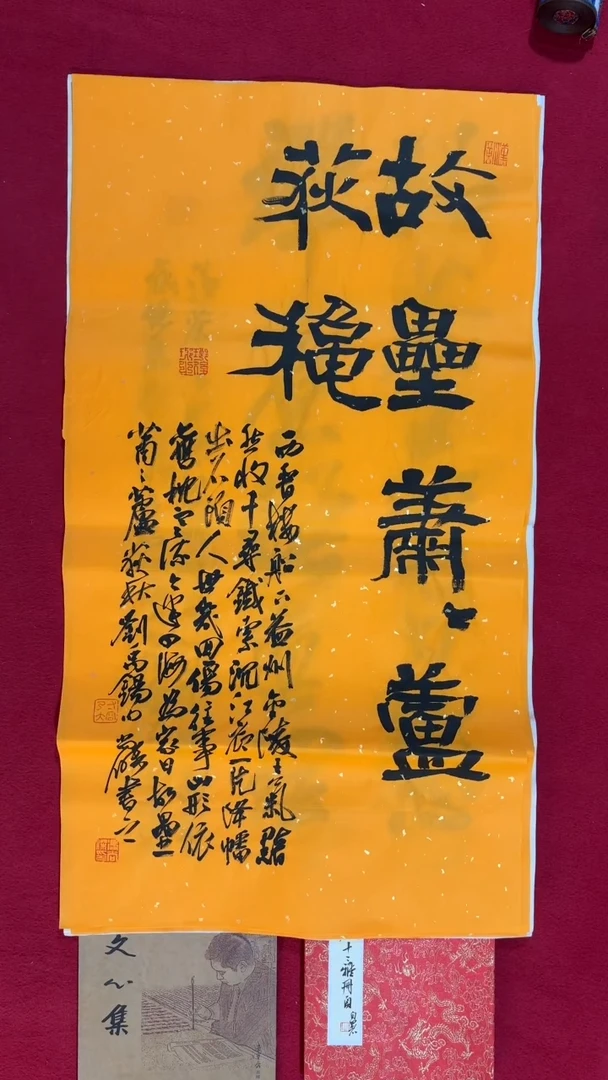 故壘蕭〻蘆
荻穐
西晉樓船下益州金陵王氣黯
然收千尋鐵索沉江底一片降幡
出石頭人世幾回傷往事山形依
舊枕寒流今逢四海為家日故壘
蕭〻蘆荻秋劉禹錫句 書之
文心集